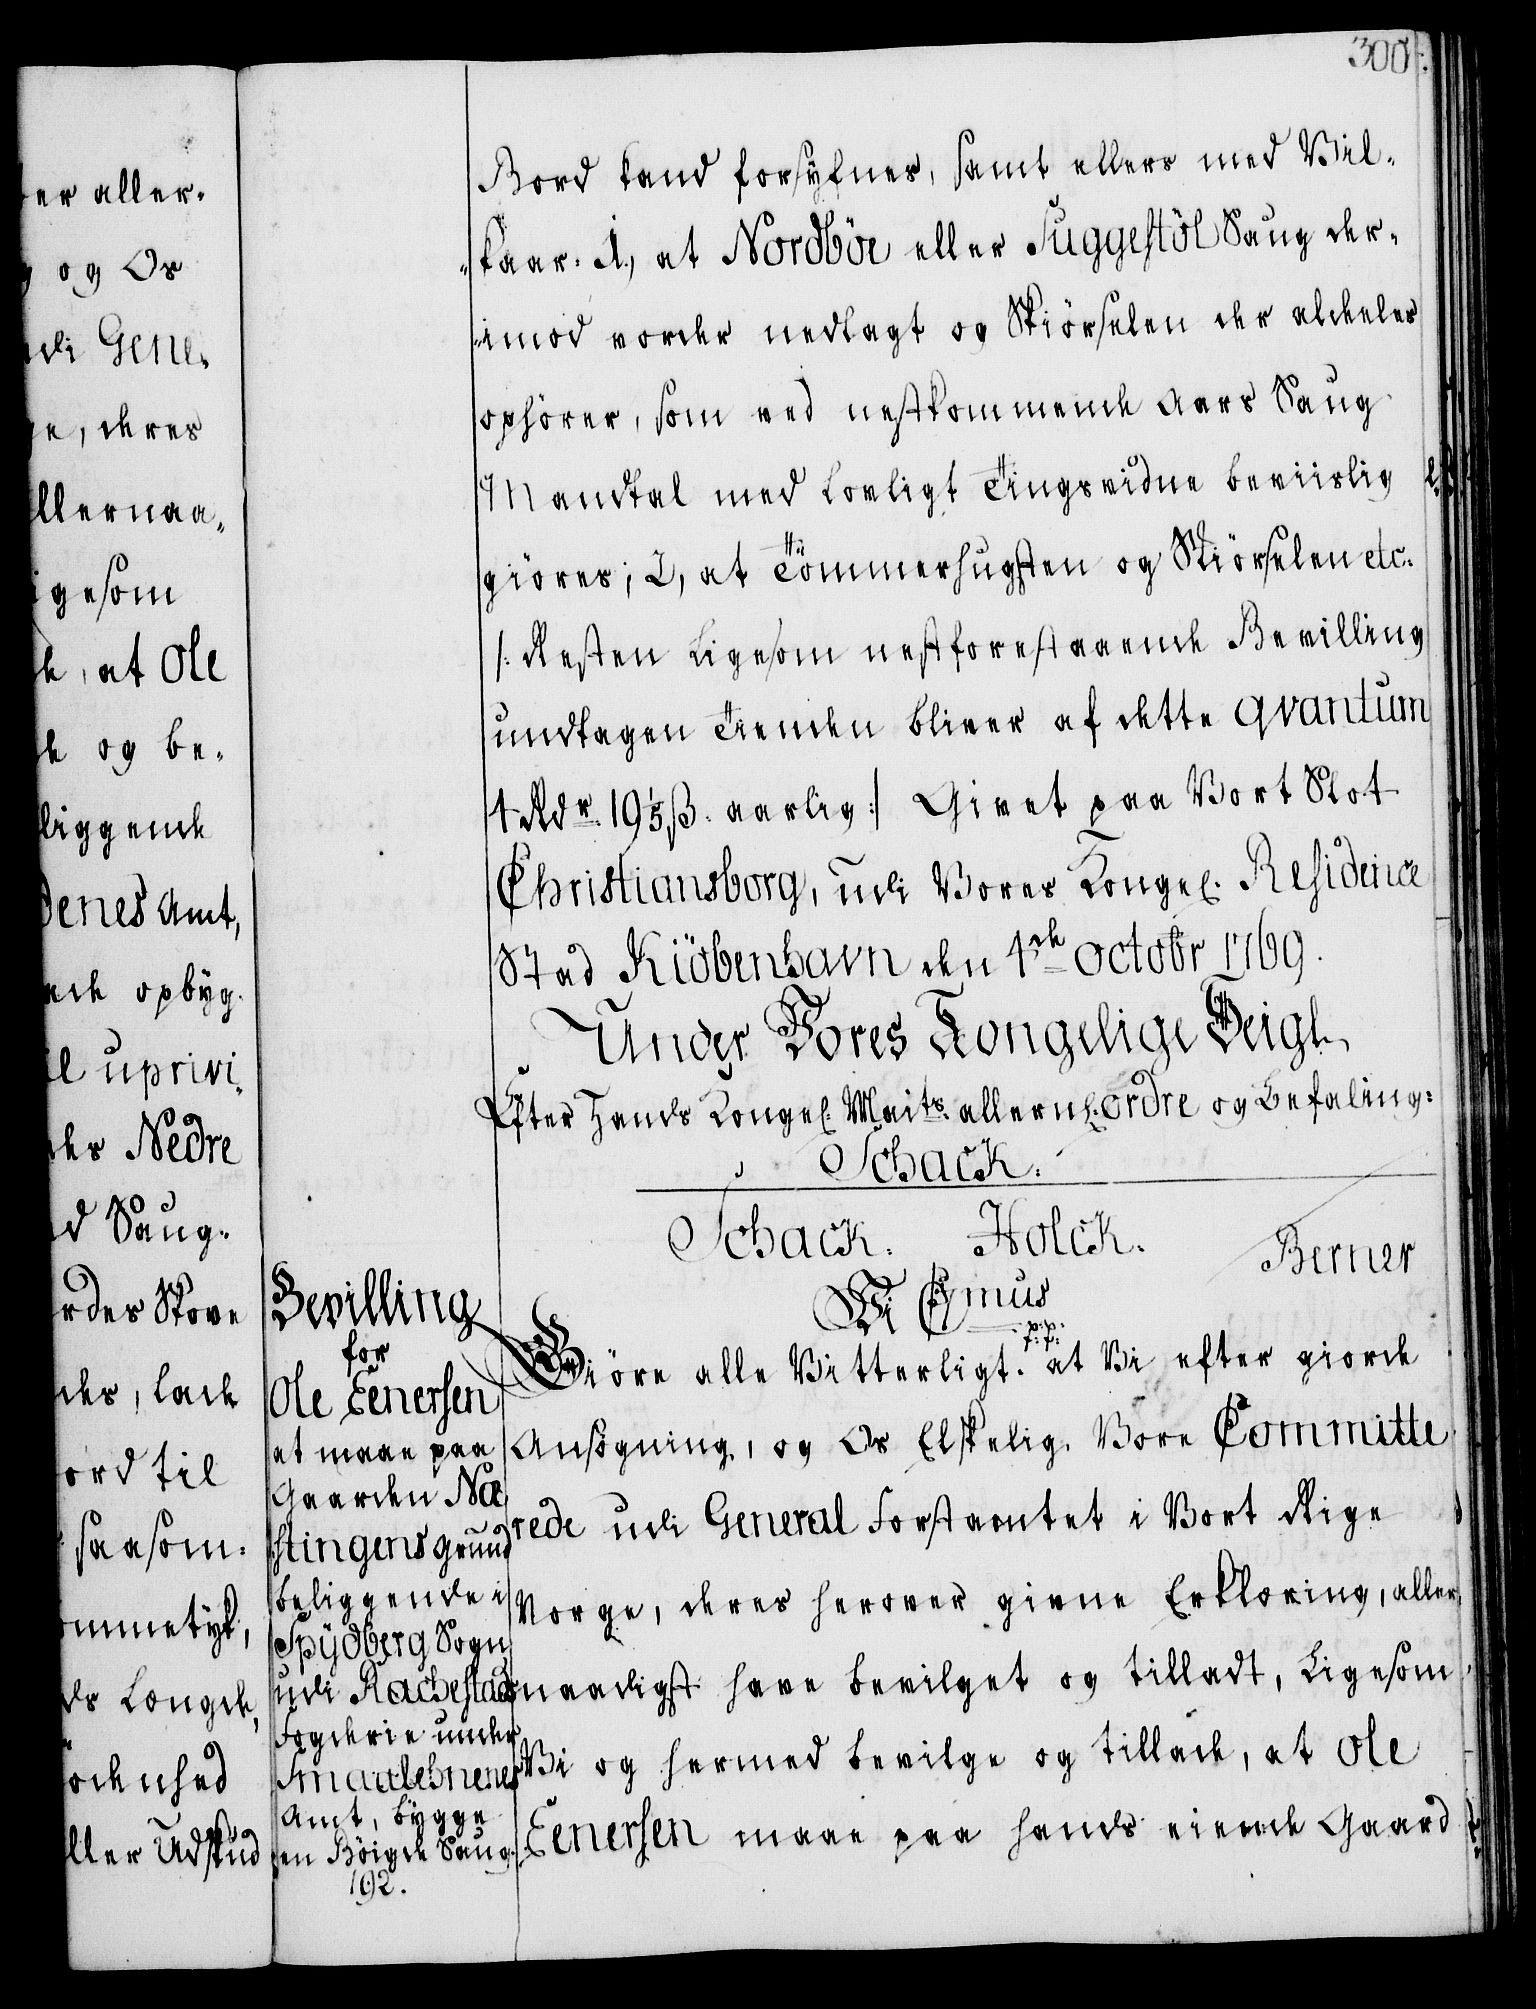 300.
er aller-
og Os
udi Gene-
ge, deres
allernaa-
igesom
de, at Ole
de og be-
liggende
denes Amt,
ade opbyg-
til uprivi-
des Nedre
ed Saug-
rdes Skove
des, lade
ord til
saasom
ommetyk,
ds Længde,
ödenhed
ller Udskud
Bord kand forsyfnes, samt ellers med Vil-
-kaar. 1, at Nordböe eller Suggestöl Saug der-
-imod vorder nedlagt og Skiörselen der aldeeles
ophörer, som ved nestkommende Aars Saug
Mandtal med Lovligt Tingsvidne beviislig
giöres; 2, at Tömmerhugsten og Skiörselen etc.
/: Resten Ligesom nestforestaaende Bevilling
undtagen Tienden bliver af dette qvantum
4 Rdr. 19 1/5 ß. aarlig :/ Givet paa Vort Slot
Christiansborg, udi Vores Kongel. Residence
Stad Kiöbenhavn den 4de Octobr 1769.
Under Vores Kongelige Seigl.
Efter Hands Kongel. Maits. allern. ordre og Befaling:
Schack.
Schack. Holck. Berner
Wi C 7mus
p: p:
t: t:
Bevilling
for
Ole Eenersen
at maae paa
Gaarden Næ
stingens grund
beliggende i
Spydberg Sogn
udi Rachestads
Fogderie under
Smaalehnenes
Amt, bygge
en Böigde Saug.
192.
Giöre alle Vitterligt. at Vi efter giorde
Ansögning, og Os Elskelig. Vore Committe
rede udi General Forstamtet i Vort Rige
Norge, deres herover givne Erklæring, aller-
naadigst have bevilget og tilladt, Ligesom
Vi og hermed bevilge og tillade, at Ole
Eenersen maae paa hands eiende Gaard